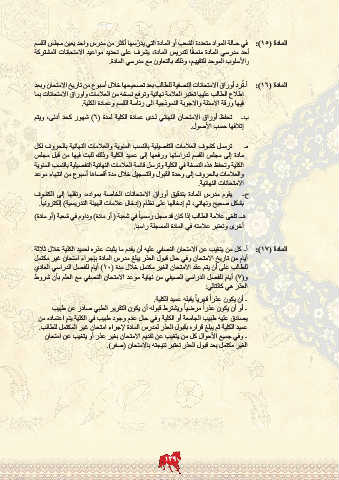 المادة (١٥): في حالة المواد متعددة الشعب أو المادة التي يدرّسها أكثر من مدرس واحد يعين مجلس القسم
أحد مدرسي المادة منسقاً لتدريس المادة، يشرف على تحديد مواعيد الامتحانات المشتركة
والأسلوب الموحد للتقييم، وذلك بالتعاون مع مدرسي المادة.
المادة (١٦): أ- تُرد أوراق الامتحانات الفصلية للطالب بعد تصحيحها خلال أسبوع من تاريخ الامتحان وبعد
اطلاع الطالب عليها تعتبر العلامة نهائية وترفع نسخة من العلامات وأوراق الامتحانات بما
فيها ورقة الأسئلة والأجوبة النموذجية الى رئاسة القسم وعمادة الكلية.
ب- تحفظ أوراق الامتحان النهائي لدى عمادة الكلية لمدة (٦) شهور كحد أدنى، ويتم
إتلافها حسب الأصول.
ترسل كشوف العلامات التفصيلية بالنسب المئوية والعلامات النهائية بالحروف لكل
مادة إلى مجلس القسم لدراستها ورفعها إلى عميد الكلية وذلك للبت فيها من قبل مجلس
الكلية وتحفظ هذه النسخة في الكلية وترسل قائمة العلامات النهائية التفصيلية بالنسب المئوية
والعلامات بالحروف إلى وحدة القبول والتسجيل خلال مدة أقصاها أسبوع من انتهاء موعد
الامتحانات النهائية.
يقوم مدرس المادة بتدقيق أوراق الامتحانات الخاصة بمواده، ونقلها إلى الكشوف
بشكل صحيح ونهائي، ثم إدخالها على نظام (إدخال علامات الهيئة التدريسية) إلكترونياً.
هـ- تلغى علامة الطالب إذا كان قد سجل رسمياً في شعبة (أو مادة) وداوم في شعبة (أو مادة)
أخرى وتعتبر علامته في المادة المسجلة راسباً.
المادة (١٧): أ- كل من يتغيب عن الامتحان النصفي عليه أن يقدم ما يثبت عذره لعميد الكلية خلال ثلاثة
أيام من تاريخ الامتحان وفي حال قبول العذر يبلغ مدرس المادة بإجراء امتحان غير مكتمل
للطالب على أن يتم عقد الامتحان الغير مكتمل خلال مدة (١٠) أيام للفصل الدراسي العادي
و(٧) أيام للفصل الدراسي الصيفي من نهاية موعد الامتحان النصفي مع العلم بأن شروط
العذر هي كالتالي:
- أن يكون عذراً قهرياً يقبله عميد الكلية.
- أو أن يكون عذراً مرضياً ويشترط قبوله أن يكون التقرير الطبي صادر عن طبيب
يصادق عليه طبيب الجامعة أو الكلية وفي حال عدم وجود طبيب في الكلية يتم اعتماده من
عميد الكلية ثم يبلغ قراره بقبول العذر لمدرس المادة لإجراء امتحان غير المكتمل للطالب.
- وفي جميع الأحوال كل من يتغيب عن تقديم الامتحان بغير عذر أو يتغيب عن امتحان
الغير مكتمل بعد قبول العذر تعتبر نتيجته بالامتحان (صفر).